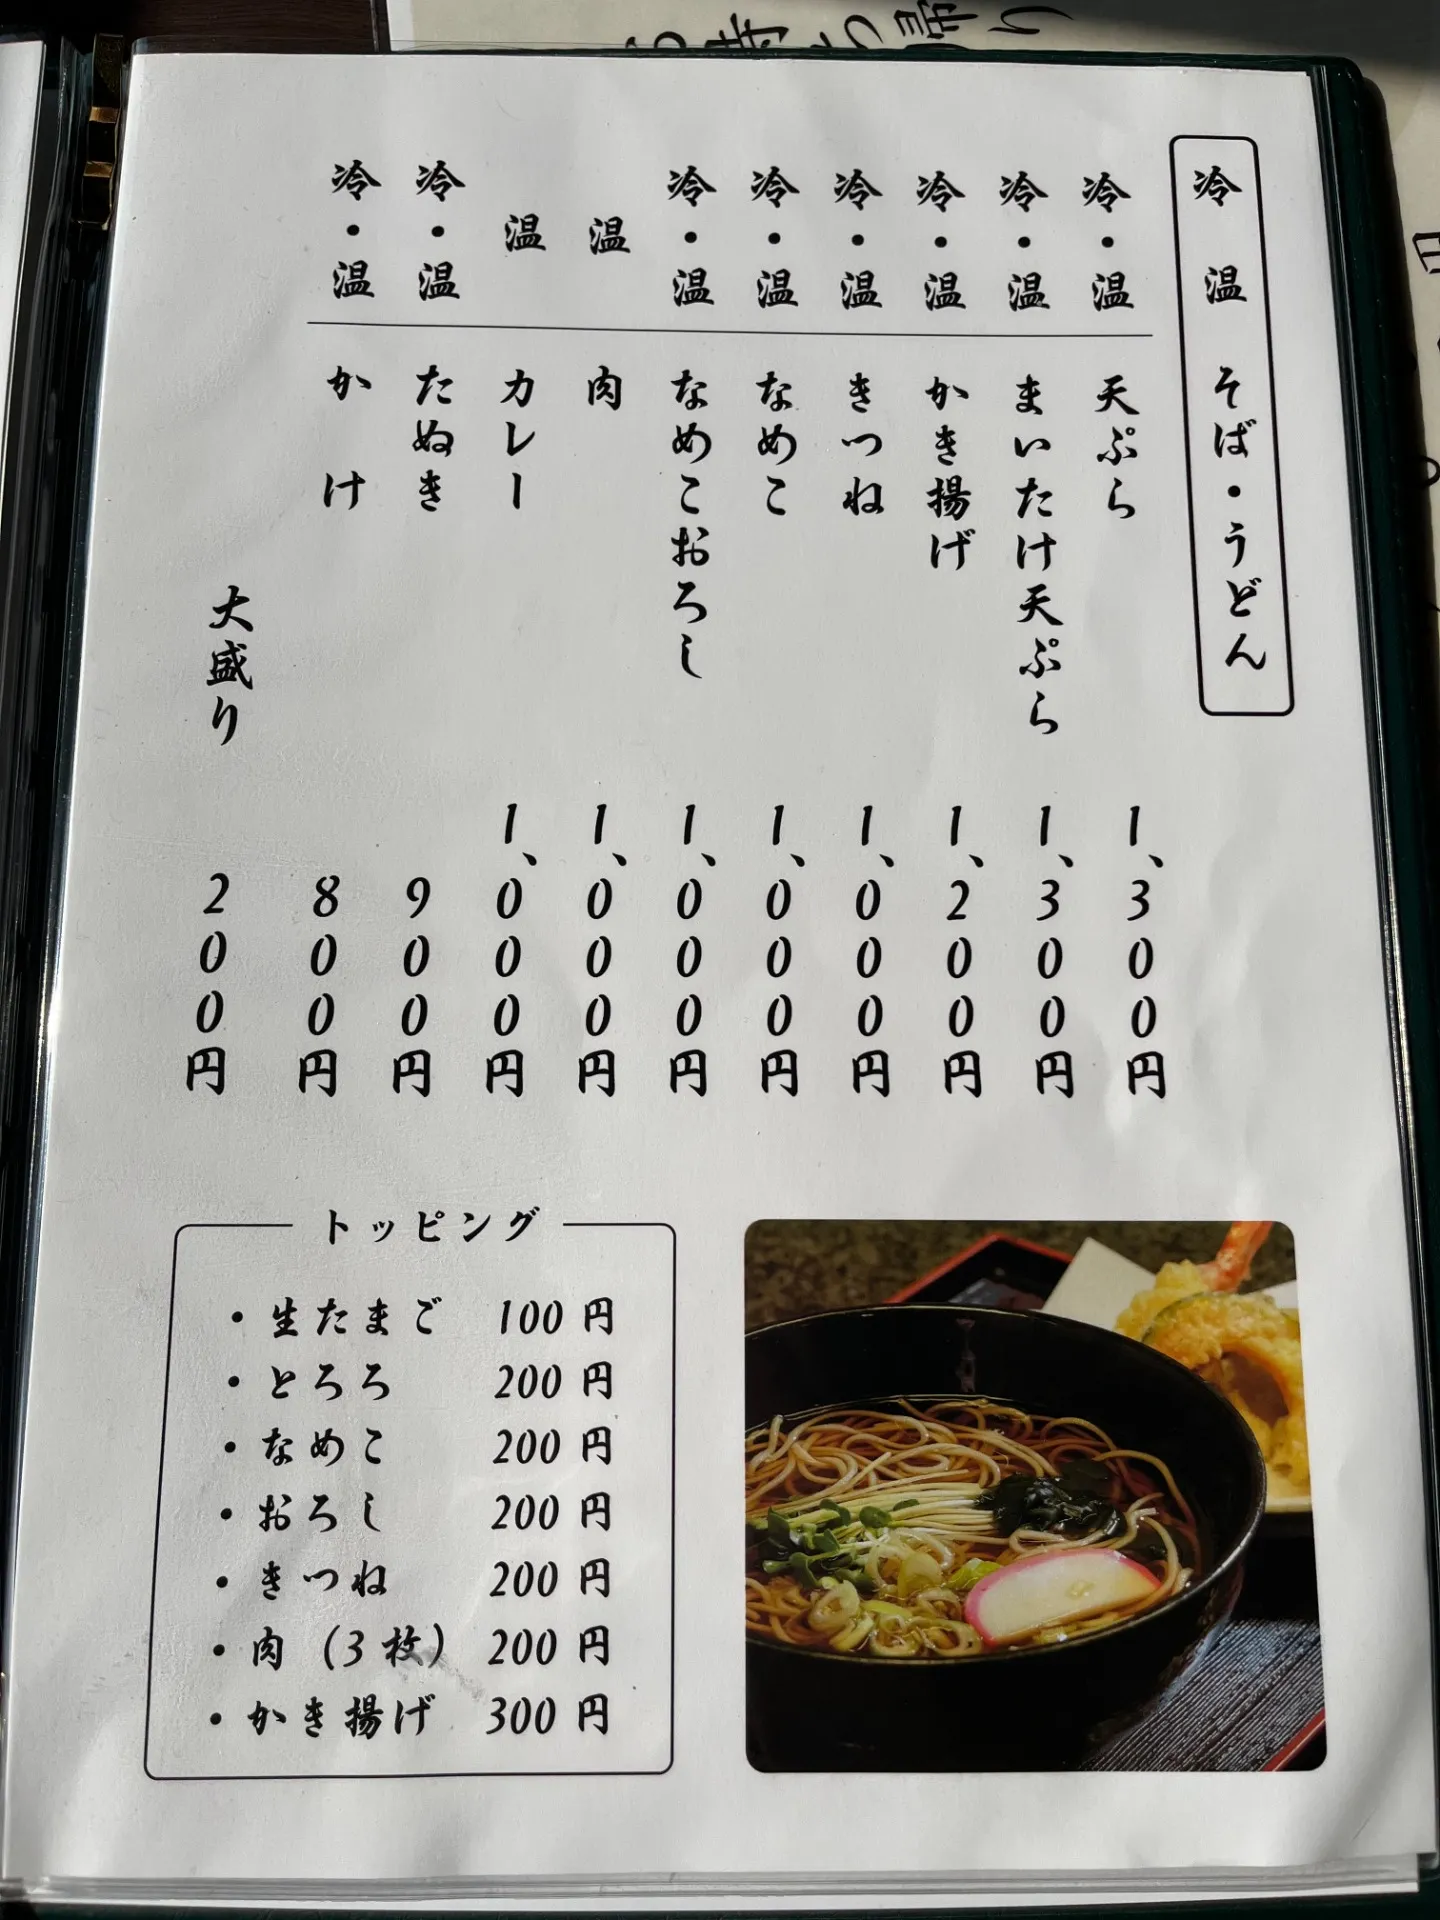 冷 温 そば・うどん
冷・温 天ぷら 1、300円
冷・温 まいたけ天ぷら 1、300円
冷・温 かき揚げ 1、200円
冷・温 きつね 1、000円
冷・温 なめこ 1、000円
冷・温 なめこおろし 1、000円
温 肉 1、000円
温 カレー 1、000円
冷・温 たぬき 900円
冷・温 かけ 800円
大盛り 200円
トッピング
・生たまご 100円
・とろろ 200円
・なめこ 200円
・おろし 200円
・きつね 200円
・肉（3枚） 200円
・かき揚げ 300円